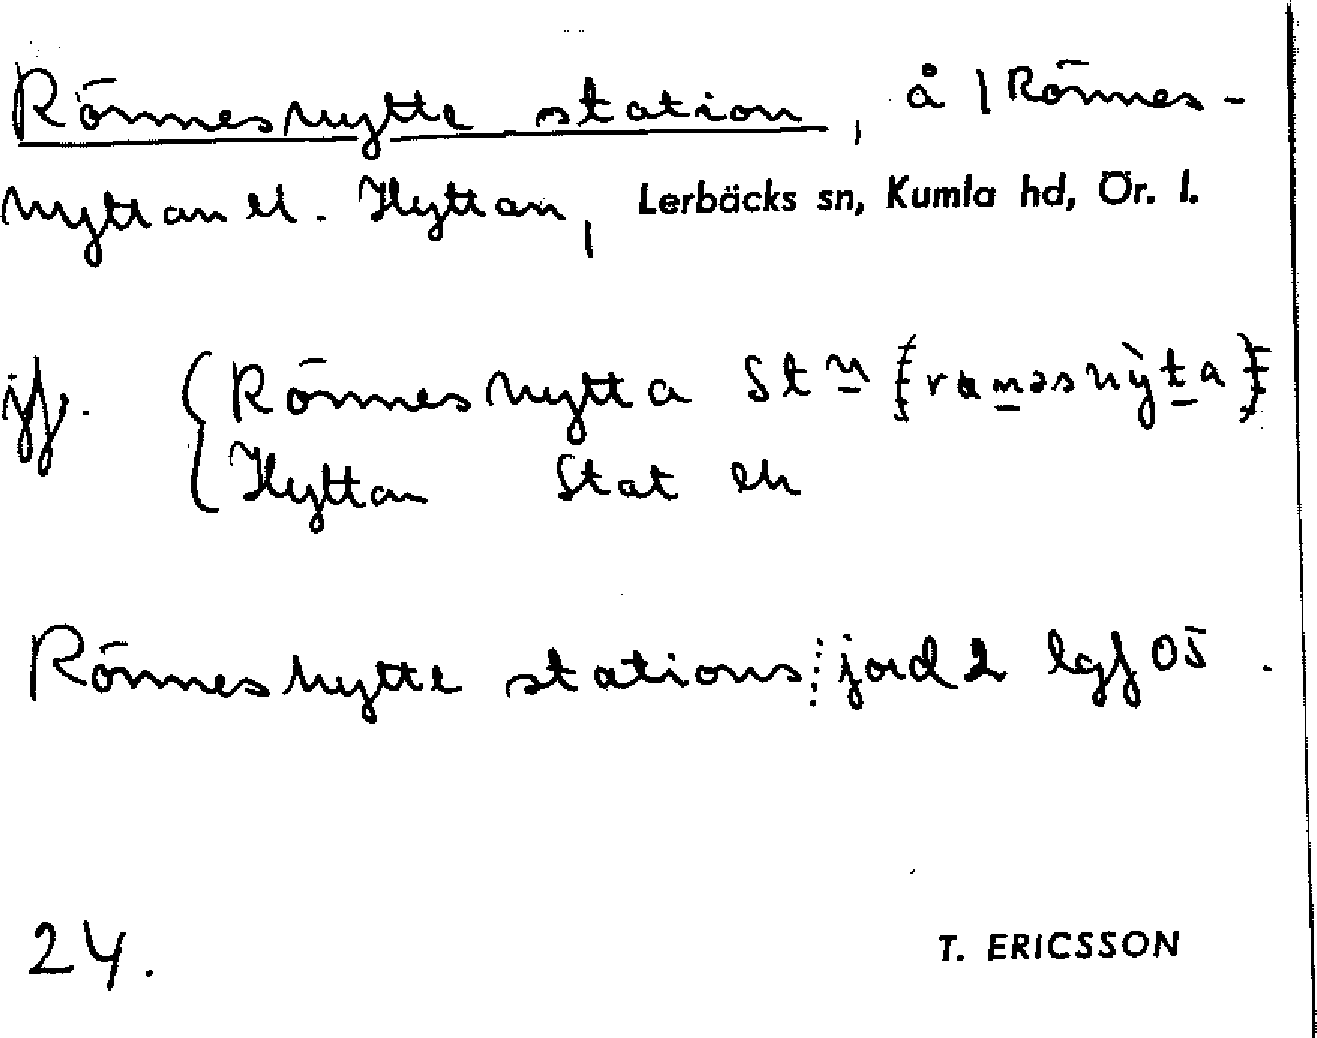 Rönneshytte station, å 1 Rönnes-
hyttan el. Hyttan, Lerbäcks sn, Kumla hd, Ör. l.
jfr. Rönneshytta Stn
Hyttan Stat ek
Rönneshytte stations jord 2 lgf 05.
24.
T. ERICSSON